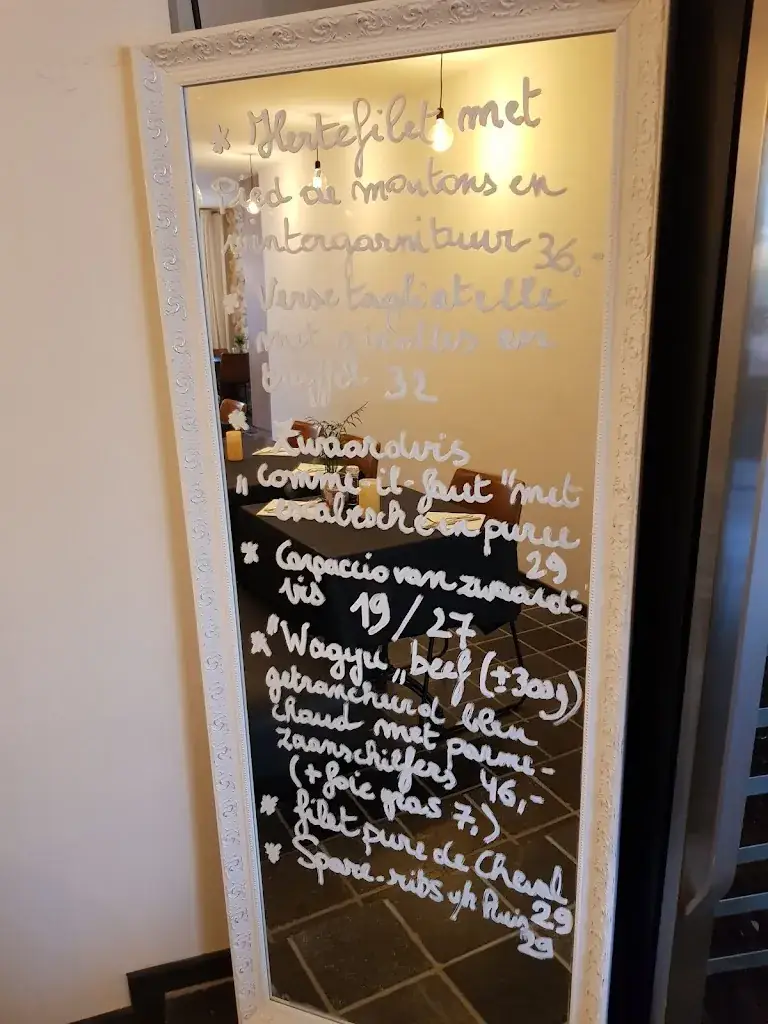 * Hertefilet met
Pied de moutons en
wintergarnituur 36,-
* Verse tagliatelle
met girolles en
truffel 32
* Zwaardvis
"comme-il-faut" met
escabeche en puree
29
* Carpaccio van zwaard-
vis 19/27
* "Wagyu" beef (±300g)
getrancheerd bleu
chaud met parme-
zaanschilfers 46,-
(+ foie gras 7,)
* filet pure de Cheval
29
* Spare-ribs v/h
29